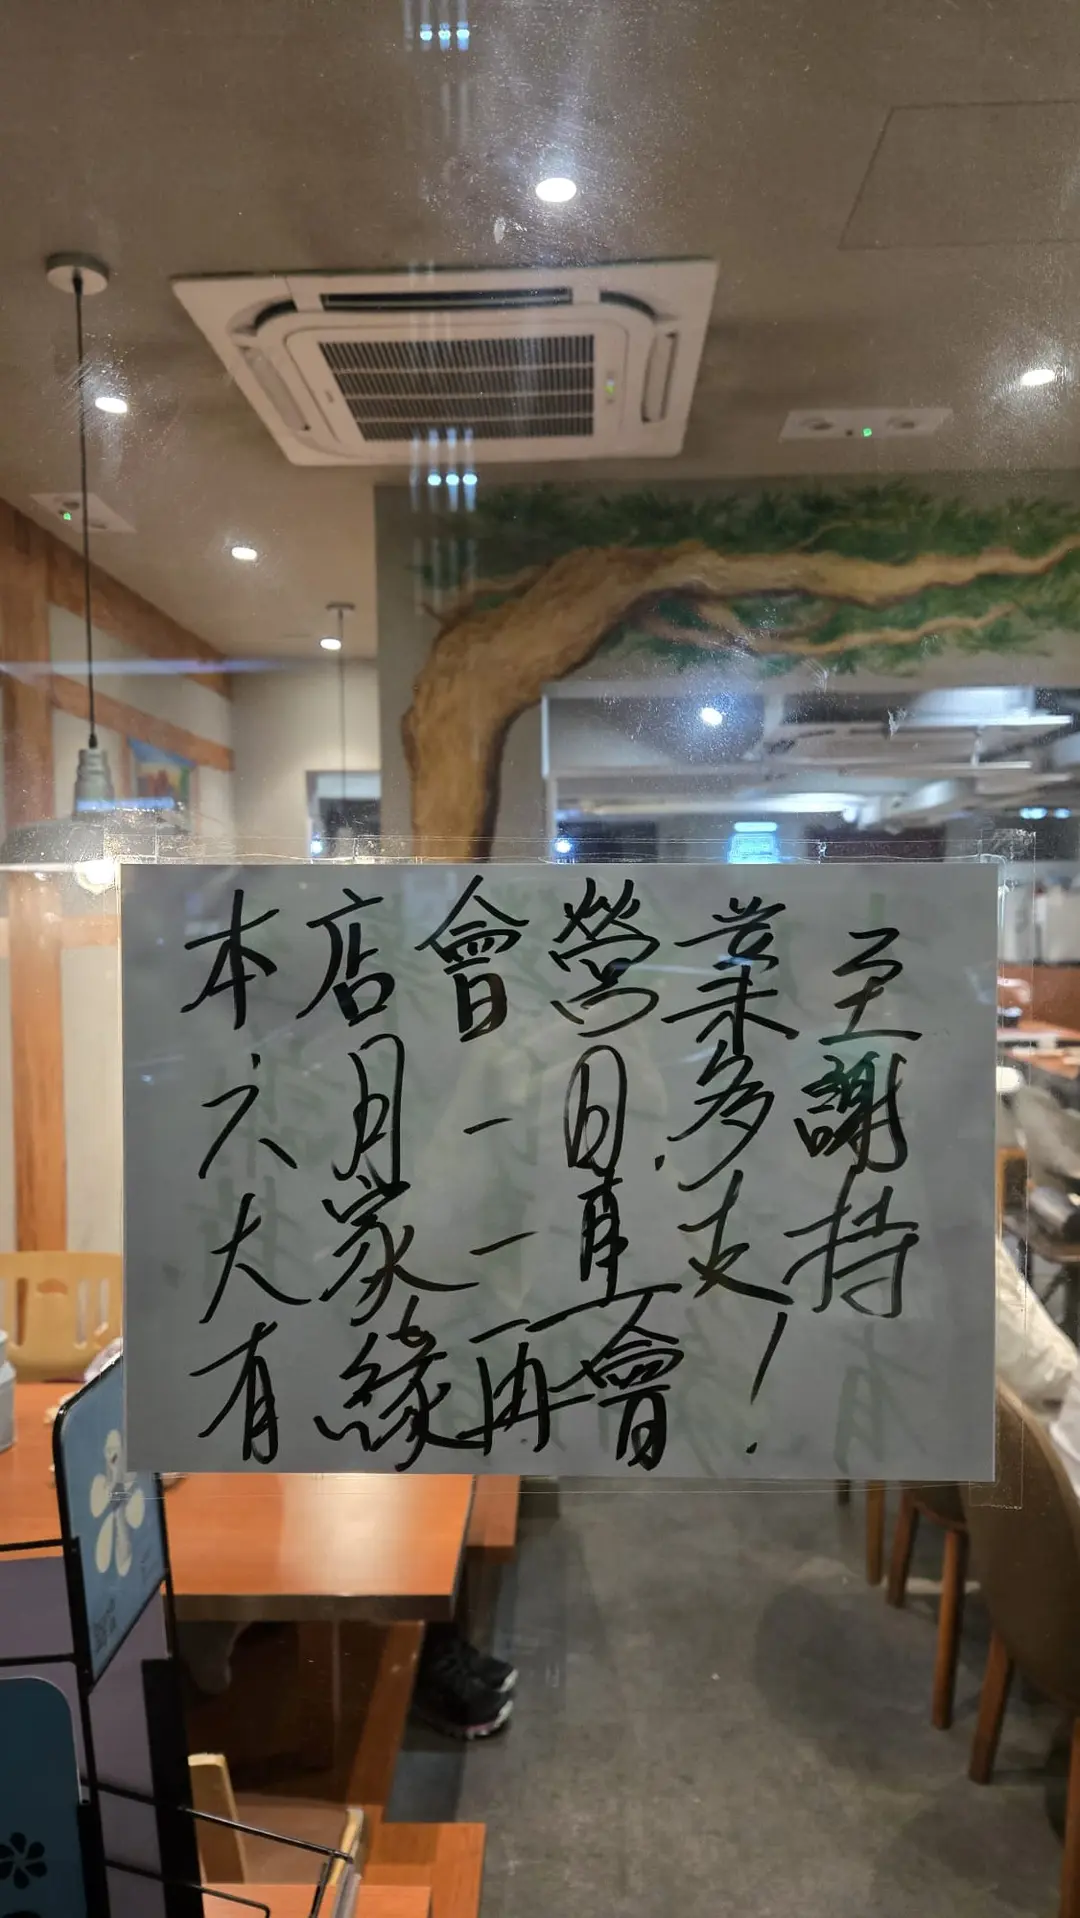 本店會營業至
六月一日.多謝
大家一直支持
有緣再會!